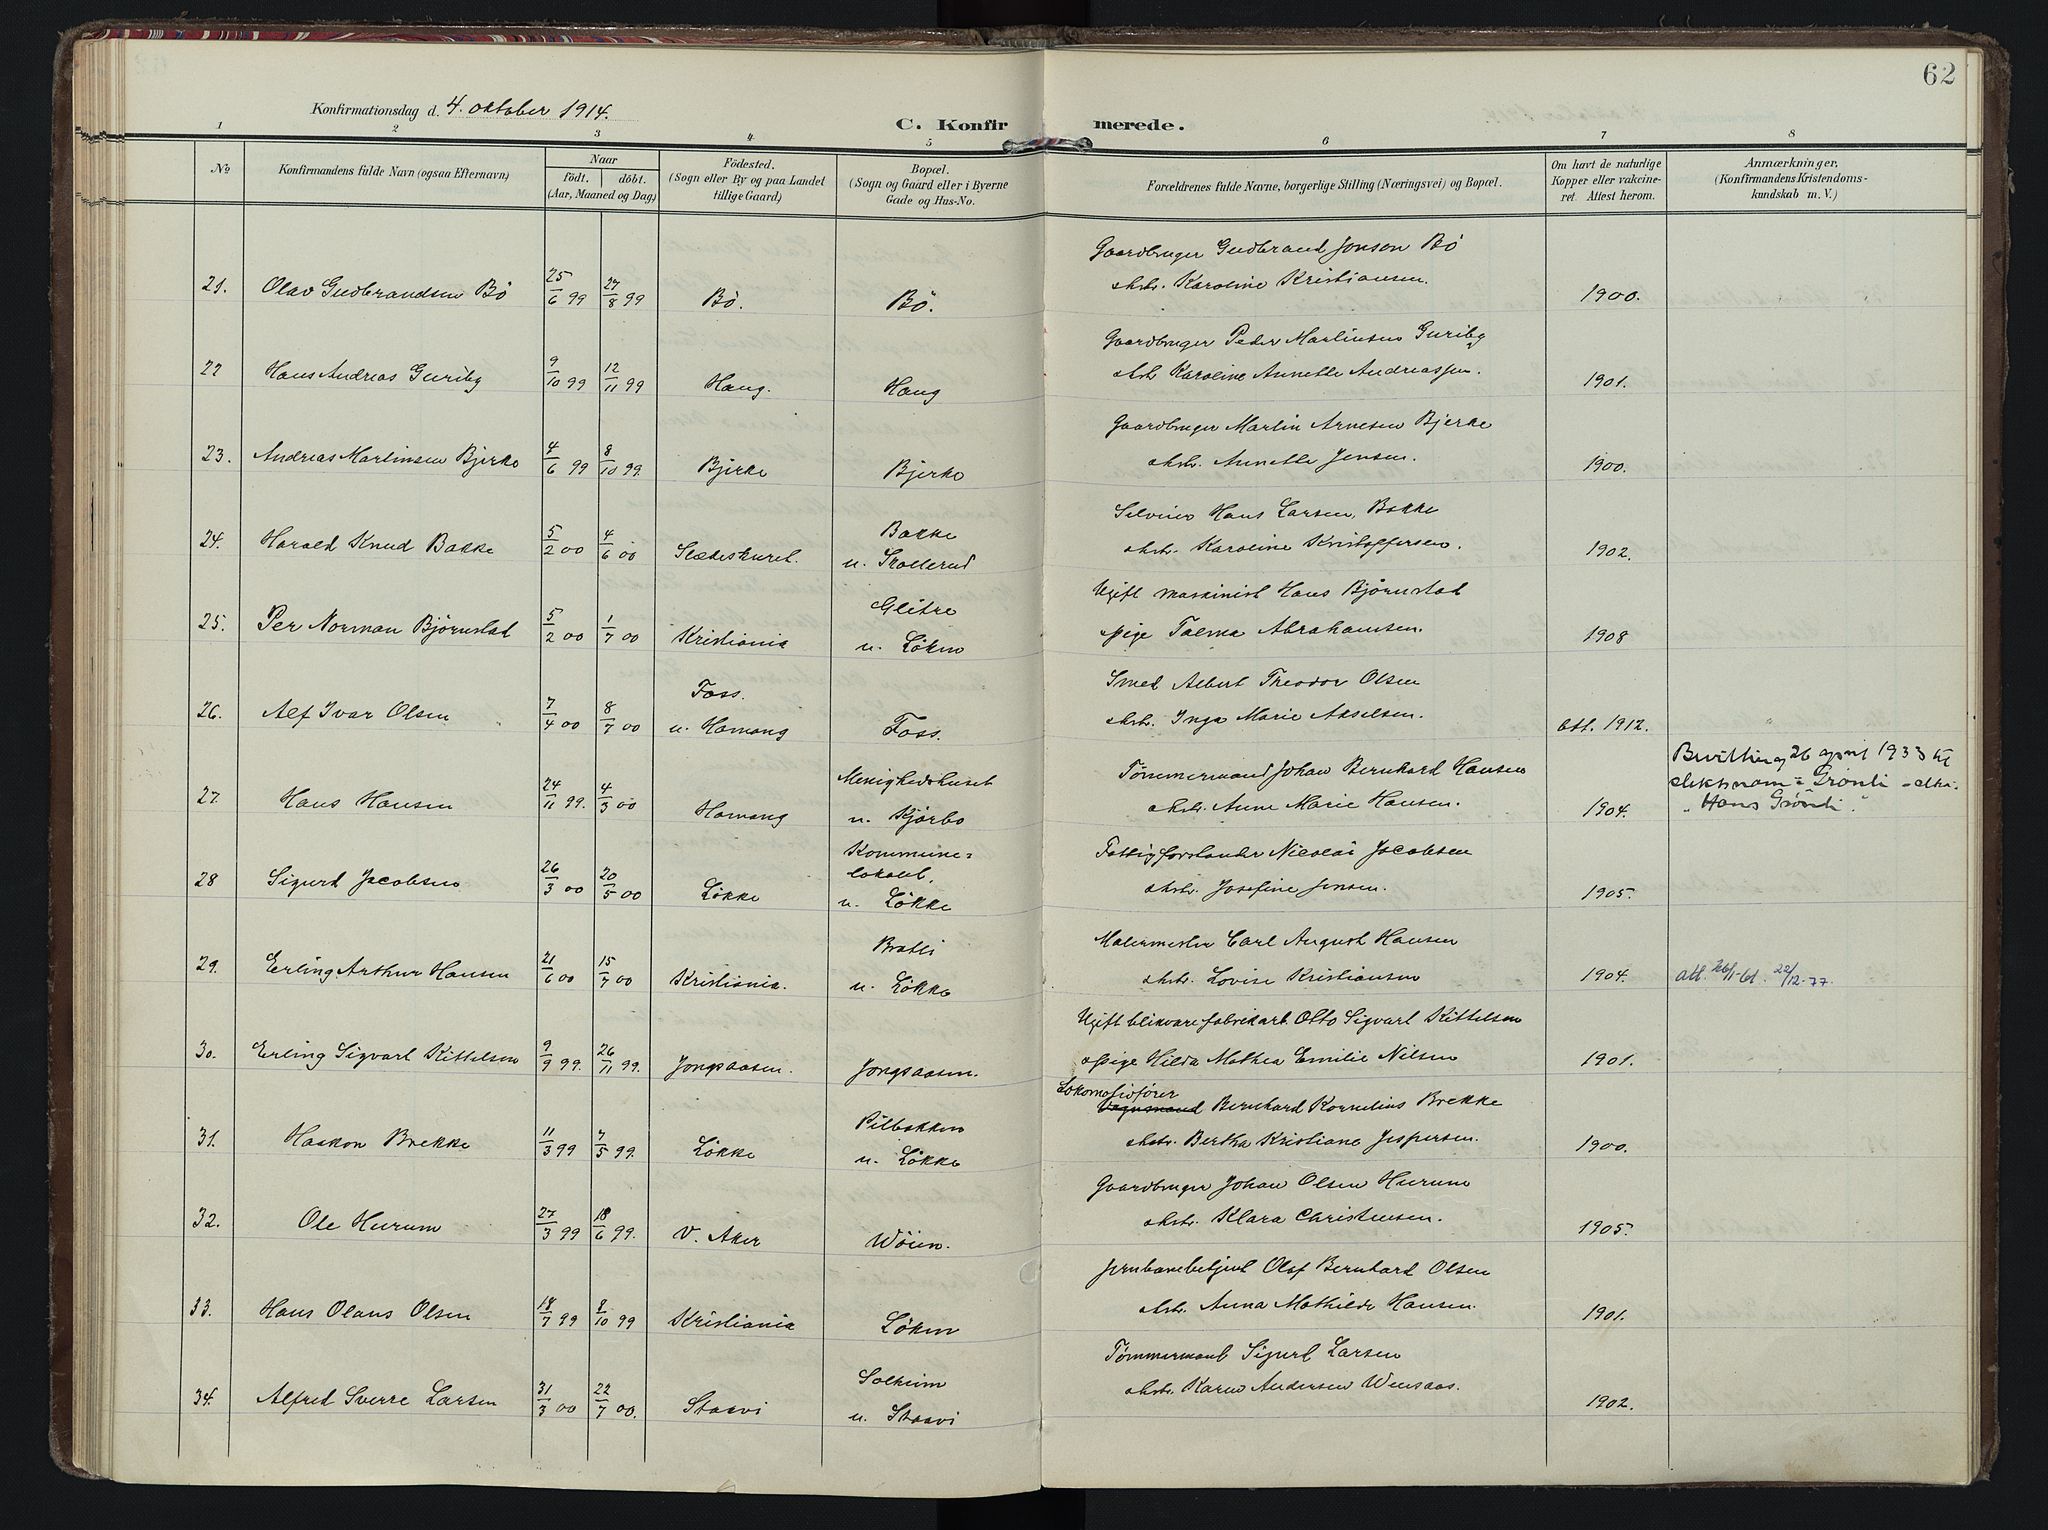 62
Konfirmationsdag d. 4. oktober 1914.
C. Konfirmerede.
1 2 3 4 5 6 7 8
No
Konfirmandens fulde Navn (ogsaa Efternavn)
Naar
födt. döbt.
(Aar, Maaned og Dag)
Födested.
(Sogn eller By og paa Landet
tillige Gaard)
Bopæl.
(Sogn og Gaard eller i Byerne
Gade og Hus-No.
Forældrenes fulde Navne, borgerlige Stilling (Næringsvei) og Bopæl.
Om havt de naturlige
Kopper eller vakcine-
ret. Attest herom.
Anmærkninger,
(Konfirmandens Kristendoms-
kundskab m. V.)
Gaardbruger Gudbrand Jonson Bö
21. Olav Gudbrandsen Bö 25/6 99 27/8 99 Bö. Bö. Karoline Kristiansen. 1900.
Gaardbruger Peder Martinsen Guriby
22 Hans Andreas Guriby 9/10 99 12/11 99 Haug. Haug Karoline Annette Andreassen. 1901.
Gaardbruger Martin Arnesen Bjerke
23. Andreas Martinsen Bjerke 4/6 99 8/10 99. Bjerke Bjerke Annette Jensen. 1900.
Selveier Hans Larsen, Bakke
24. Harald Knud Bakke 5/2 00 4/6 00 Bakke
u. Skollerud Karoline Kristoffersen. 1902.
Ugift maskinist Hans Bjørnstad
25. Per Norman Bjørnstad 5/2 00 1/7 00 Kristiania Glitre
u. Løken pige Talma Abrahamsen. 1908
Smed Albert Theodor Olsen
26. Alf Ivar Olsen 7/4 00 8/7 00 Foss.
u. Hamang Foss. Inga Marie Axelsen. att. 1912.
Tømmermand Johan Bernhard Hansen
27. Hans Hansen 24/11 99. 4/3 00 Hamang Menighedshuset
u. Kjørbo Anne Marie Hansen. 1904. Bevilling 26 april 1933 til
slektsnavn = Grönli
"Hans Grönli".
Fattigforstander Nicolai Jacobsen
28 Sigurd Jacobsen 26/3 00 20/5 00 Løkke Kommune-
lokalet,
u. Løkke Josefine Jensen. 1905.
Malermester Carl August Hansen
29. Erling Arthur Hansen 21/6 00 15/7 00 Kristiania. Bratli
u. Løkke Lovise Kristiansen 1904. att. 26/1-61. 22/12-77.
Ugift blikvarefabrikarb. Otto Sigvart Kittelsen
30. Erling Sigvart Kittelsen 9/9 99. 26/11 99. Jongsaasen. Jongsaasen. pige Hilda Mathea Emilie Nilsen 1901.
Lokomotivfører
Vognmand Bernhard Kornelius Brekke
31. Haakon Brekke 11/3 99 7/5 99. Løkke Pilbakken
u. Løkke Bertha Kristiane Jespersen. 1900.
Gaardbruger Johan Olsen Hurum
32. Ole Hurum 27/3 99 18/6 99. V. Aker Wöien. Klara Christensen. 1905.
Jernbanebetjent Olaf Bernhard Olsen
33. Hans Olaus Olsen 18/7 99 8/10 99 Kristiania Løken Anna Mathilde Hansen. 1901.
Tømmermand Sigurd Larsen
34. Alfred Sverre Larsen 31/3 00 22/7 00. Staavi Solheim
u. Staavi Karen Andersen Wensaas. 1902.